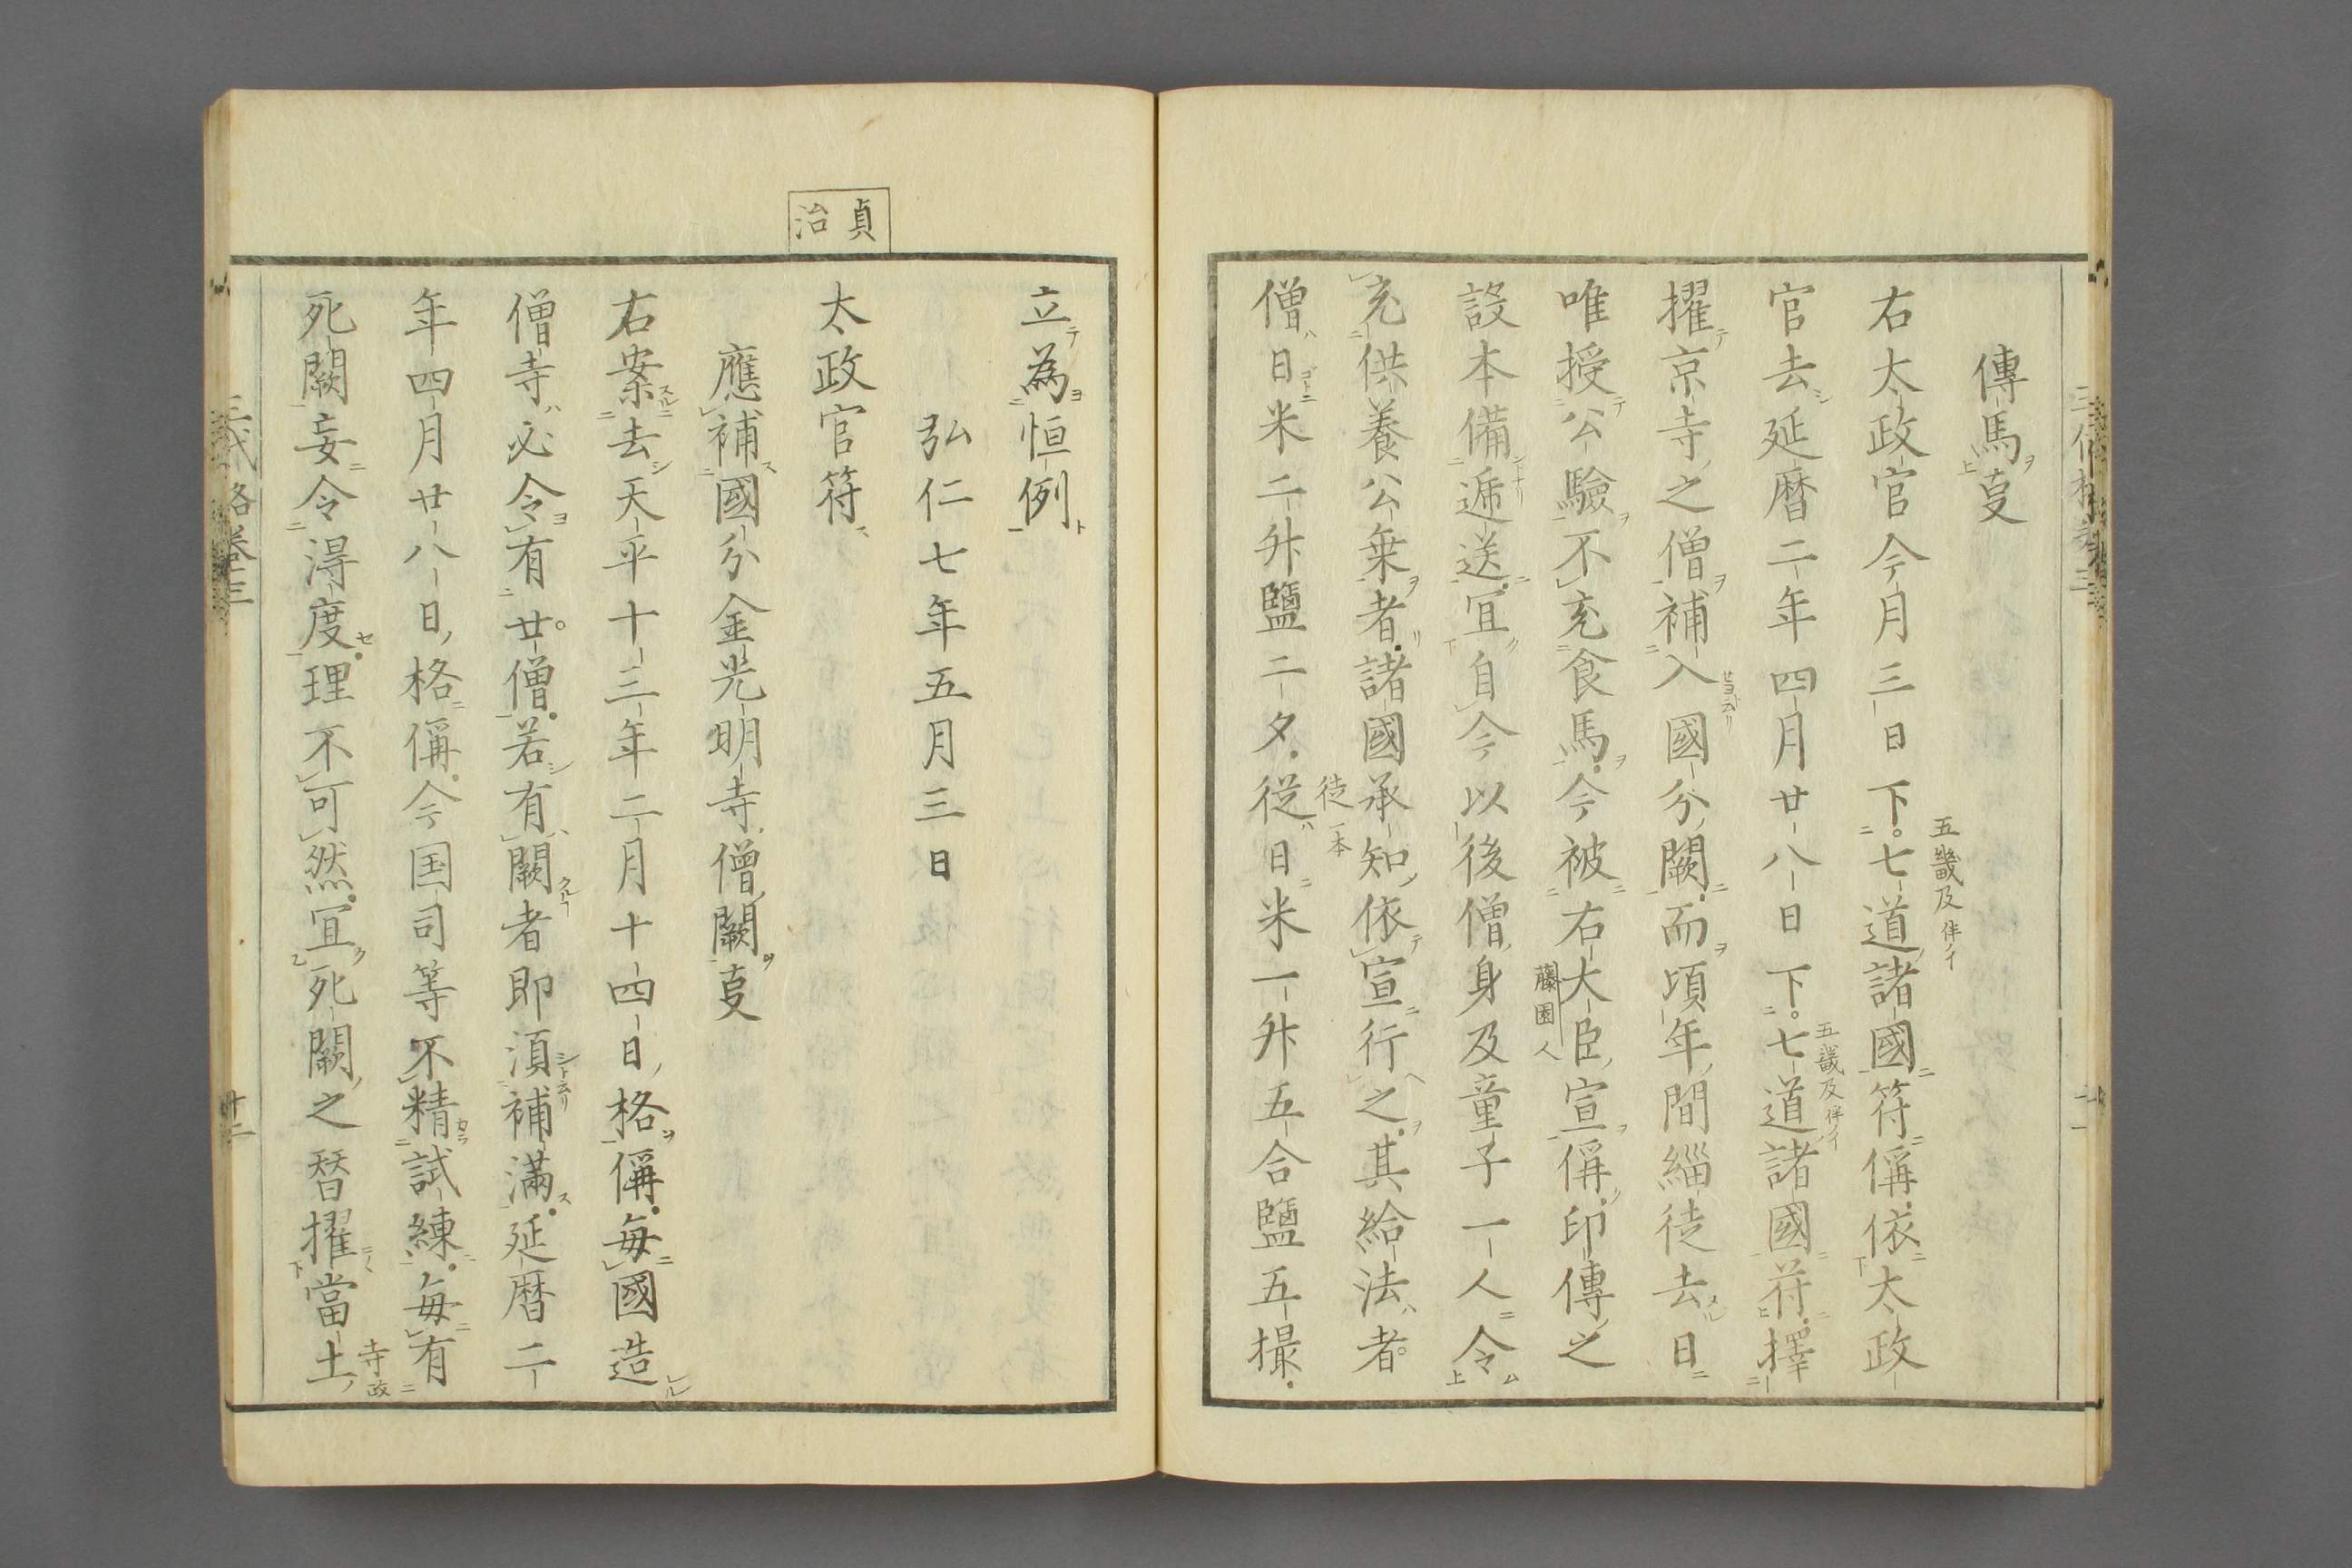 傳馬㕝
右太政官今月三日下。七道諸國符偁。依太政
五畿及伴ノイ
官去延暦二年四月廿八日下。七道諸國苻。擇
五畿及伴ノイ
擢京寺之僧補入國分闕。而頃年間緇徒去日
唯授公驗不充食馬。今被右大臣宣偁。印傳之
藤園人
設本備遞送。冝自今以後僧身及童子一人令
充供養公乗者。諸國承知依宣行之。其給法者。
僧日米二升鹽二夕。従日米一升五合鹽五撮。
徒一本
立為恒例
弘仁七年五月三日
貞治
太政官符
應補國分金光明寺僧闕㕝
右案去天平十三年二月十四日格偁。毎國造
僧寺必令有廿僧。若有闕者即湏補滿。延暦二
年四月廿八日格偁。今国司等不精試練。毎有
死闕妄令得度。理不可然。冝死闕之替擢當土
寺政
三代格卷三